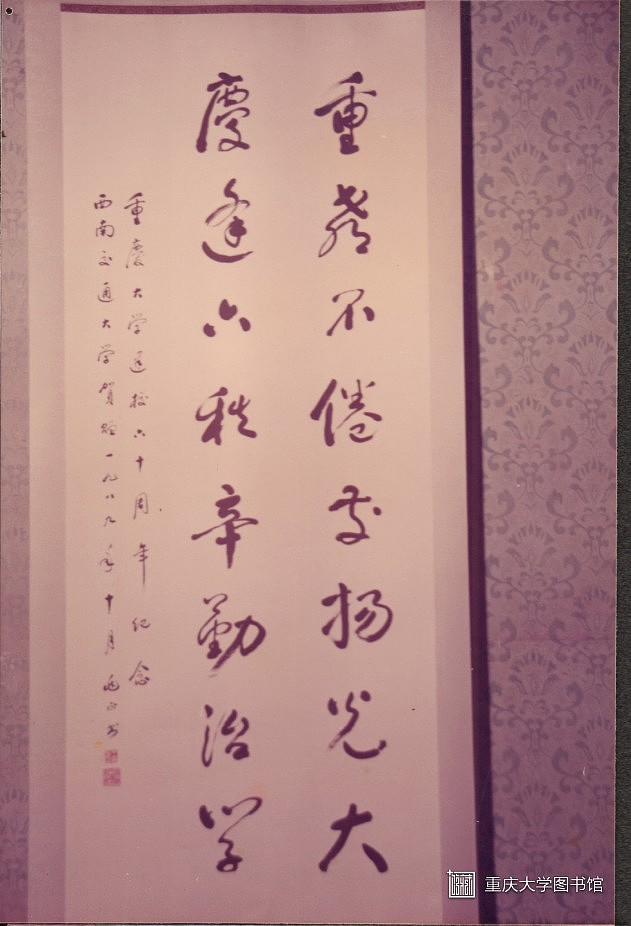 重不倦发扬光大
慶逢六秩辛勤治学
重慶大学建校六十周年纪念
西南交通大学賀 一九八九年十月 书
重庆大学图书馆